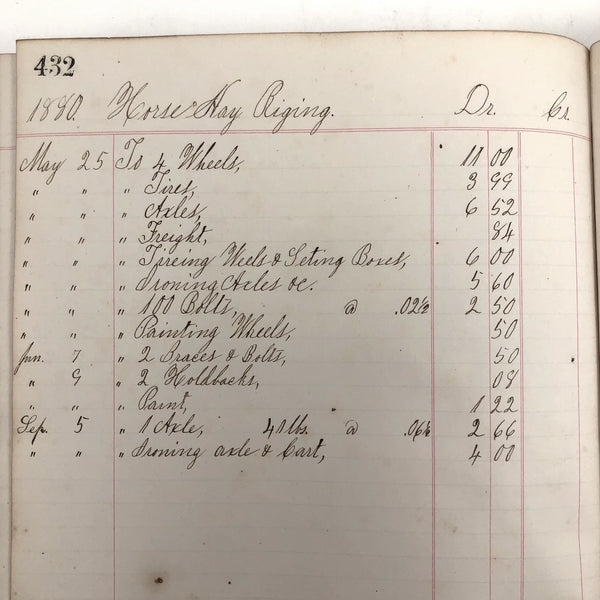 432
1880. Horse Hay Riging. Dr. Cr.
May 25 To 4 Wheels, 11 00
" " " Tires, 3 99
" " " Axles, 6 52
" " " Freight, 84
" " " Tireing Weels & Seting Boxes, 6 00
" " " Ironing Axles &c. 5 60
" " " 100 Bolts, @ .02½ 2 50
" " " Painting Wheels, 50
Jun. 7 " 2 Braces & Bolts, 50
" 9 " 2 Holdbacks, 08
" " " Paint, 1 22
Sep. 5 " 1 Axle, 41 lbs. @ .06½ 2 66
" " " Ironing axle & Cart, 4 00